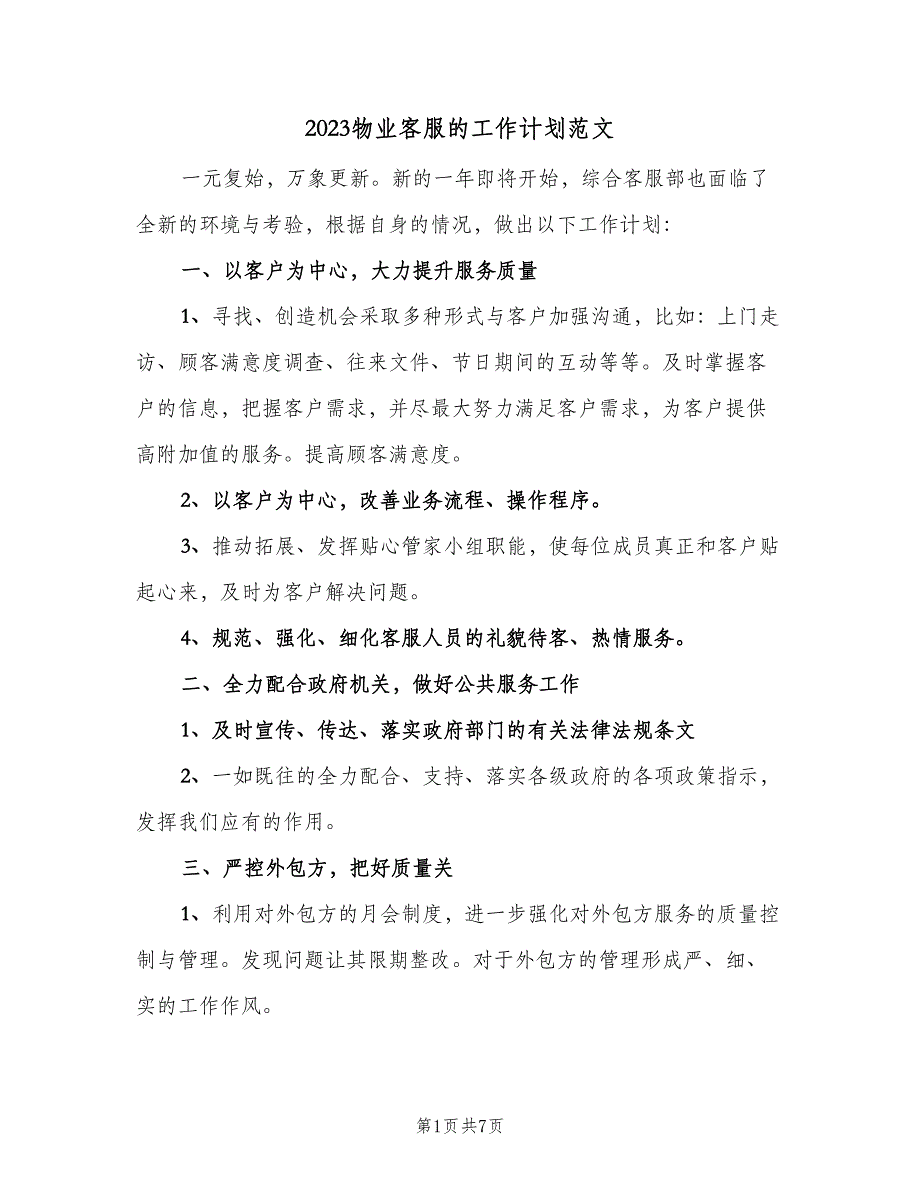 2023物业客服的工作计划范文
一元复始，万象更新。新的一年即将开始，综合客服部也面临了
全新的环境与考验，根据自身的情况，做出以下工作计划：
一、以客户为中心，大力提升服务质量
1、寻找、创造机会采取多种形式与客户加强沟通，比如：上门走
访、顾客满意度调查、往来文件、节日期间的互动等等。及时掌握客
户的信息，把握客户需求，并尽最大努力满足客户需求，为客户提供
高附加值的服务。提高顾客满意度。
2、以客户为中心，改善业务流程、操作程序。
3、推动拓展、发挥贴心管家小组职能，使每位成员真正和客户贴
起心来，及时为客户解决问题。
4、规范、强化、细化客服人员的礼貌待客、热情服务。
二、全力配合政府机关，做好公共服务工作
1、及时宣传、传达、落实政府部门的有关法律法规条文
2、一如既往的全力配合、支持、落实各级政府的各项政策指示，
发挥我们应有的作用。
三、严控外包方，把好质量关
1、利用对外包方的月会制度，进一步强化对外包方服务的质量控
制与管理。发现问题让其限期整改。对于外包方的管理形成严、细、
实的工作作风。
第1页共7页